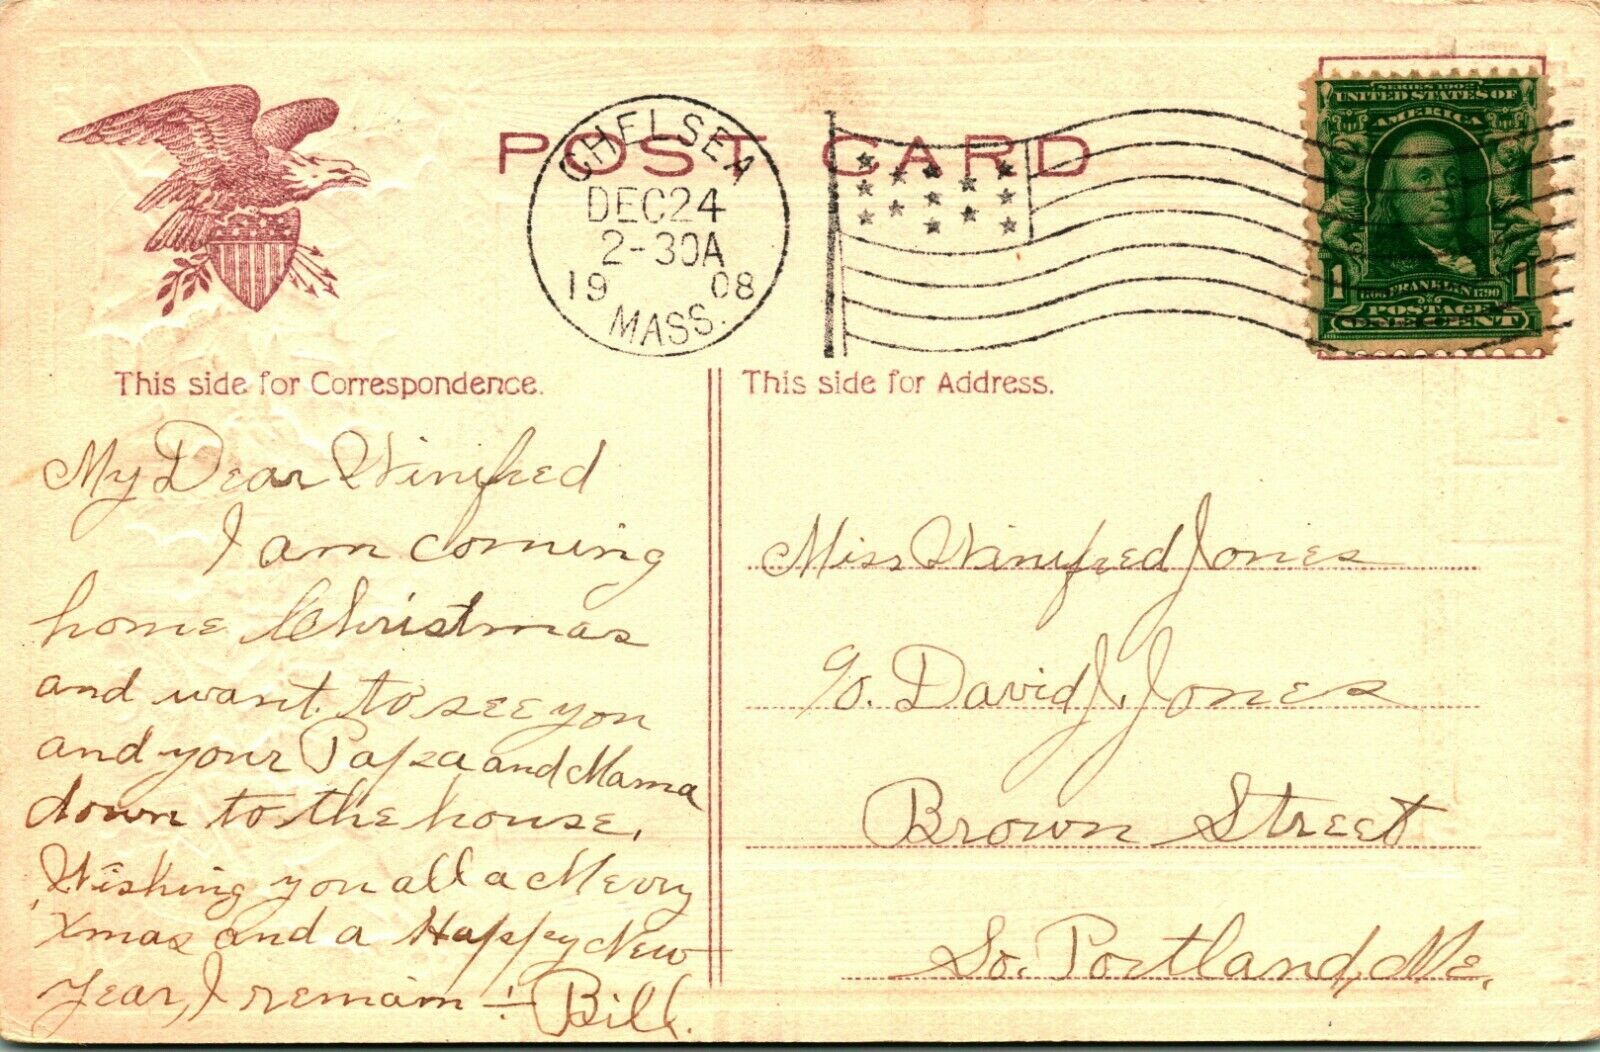 POST CARD
CHELSEA
DEC 24
2-30A
1908
MASS.
SERIES 1902
UNITED STATES OF
AMERICA
1 1
FRANKLIN 1790
POSTAGE
ONE CENT
This side for Correspondence.
My Dear Winifred
I am coming
home Christmas
and want to see you
and your Papa and Mama
down to the house.
Wishing you all a Merry
Xmas and a Happy New
Year, I remain ÷ Bill.
This side for Address.
Miss Winifred Jones
c/o. David J. Jones
Brown Street
So. Portland, Me.